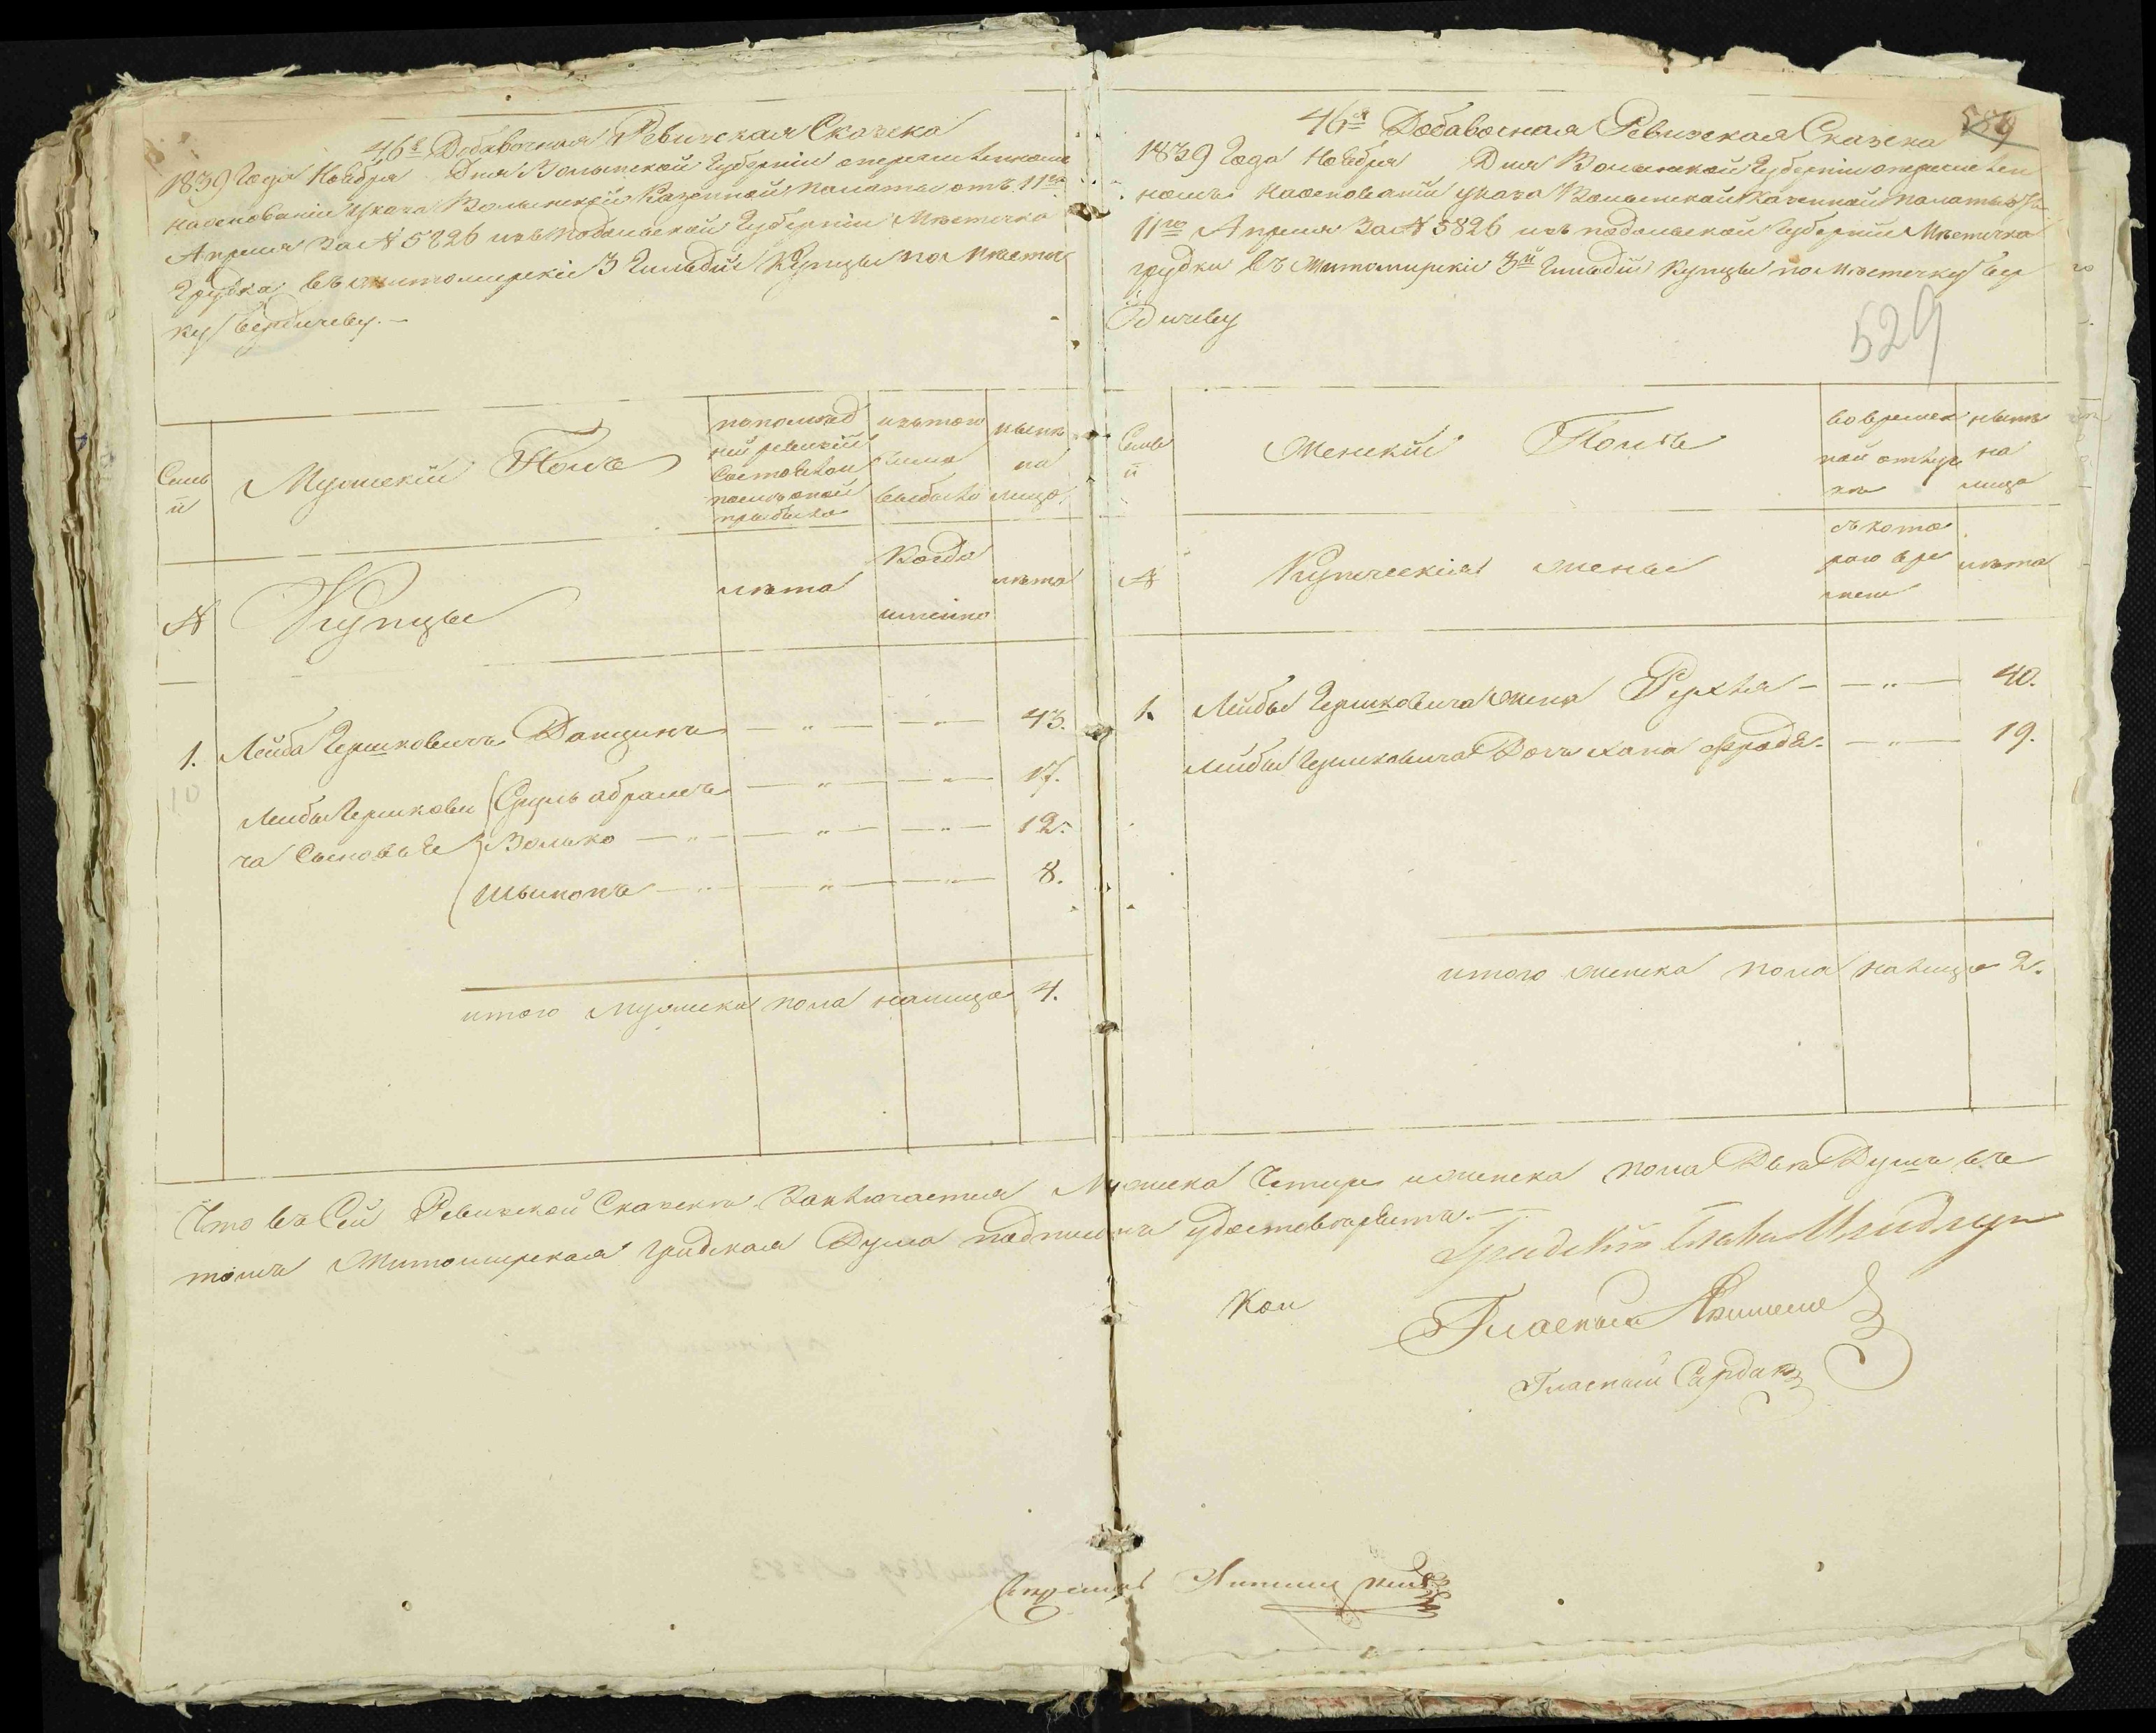 46я Добавочная Ревизская Сказка
1839 Года Ноября Дня Волынской Губерніи о перечисленном
на основаніи Указа Волынской Казенной палаты отъ 11го
Апреля За № 5826 изъ подольской Губерніи Мѣстечка
Грудка въ житомирскіе 3 Гильдіи Купцы по Мѣстеч
ку Бердичеву. —
Семь
и
Мужескій Полъ
по послѣд
ней ревизіи
Состояло и
послѣ оной
прибыло
изъ того
числа
выбыло
нынѣ
на
лицо
№
Купцы
лѣта
Когда
именно
лѣта
1. Лейба Гершковичъ Данцинъ — „ — — „ — 43.
10
Лейбы Гершкови
ча Сыновья
Сруль абрамъ — „ — — „ — 17.
Волько — „ — — „ — — „ — 12.
Шымонъ — „ — — „ — — „ — 8.
итого мужеска пола налицо 4.
46я Добавочная Ревизская Сказка
589
1839 Года Ноября Дня Волынской Губерніи о перечислен
номъ на основаніи указа Волынской Казенной палаты отъ
11го Апреля За № 5826 изъ подольской Губерніи Мѣстечка
грудка въ Житомирскіе 3й Гильдіи Купцы по Мѣстечку Бер
дичеву
529
Семь
и
Женскій Полъ
во времен
ной отлуч
кѣ
нынѣ
на
лицо
№
Купеческія жены
съ кото
раго вре
мени
лѣта
1. Лейбы Гершковича жена Рухля — — „ — 40.
Лейбы Гершковича Дочь Хана Фрода. — „ — 19.
итого женска пола налицо 2.
Что въ Сей Ревизской Сказкѣ Заключается Мужеска Четыре и женска пола Двѣ Душъ въ
томъ Житомирская градская Дума подписомъ удостовѣряетъ. —
Градскій Глава
Гласный
Гласный Сардак